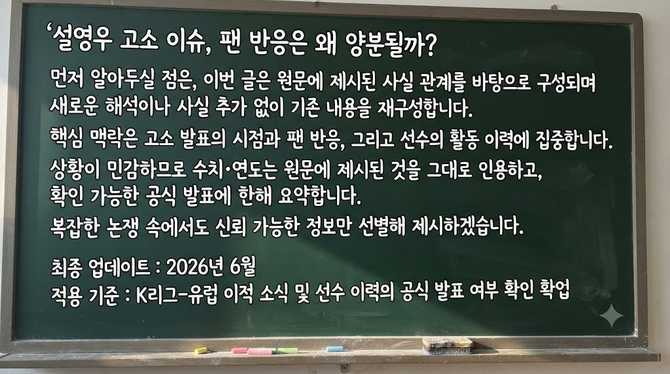 ‘설영우 고소 이슈, 팬 반응은 왜 양분될까?
먼저 알아두실 점은, 이번 글은 원문에 제시된 사실 관계를 바탕으로 구성되며
새로운 해석이나 사실 추가 없이 기존 내용을 재구성합니다.
핵심 맥락은 고소 발표의 시점과 팬 반응, 그리고 선수의 활동 이력에 집중합니다.
상황이 민감하므로 수치·연도는 원문에 제시된 것을 그대로 인용하고,
확인 가능한 공식 발표에 한해 요약합니다.
복잡한 논쟁 속에서도 신뢰 가능한 정보만 선별해 제시하겠습니다.
최종 업데이트 : 2026년 6월
적용 기준 : K리그-유럽 이적 소식 및 선수 이력의 공식 발표 여부 확인 확업